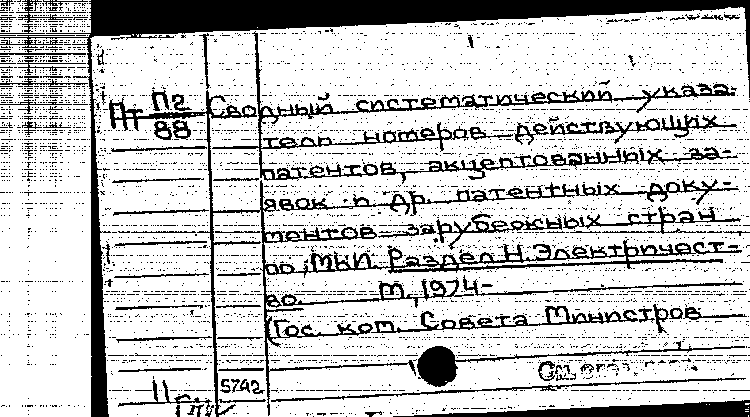 Пт П2/88 Сводный систематический указа-
тель номеров действующих
патентов, акцептованных за-
явок и др. патентных доку-
ментов зарубежных стран
по МКИ. Раздел Н. Электричест-
во. М., 1974-
(Гос. ком. Совета Министров
См.
11 5742